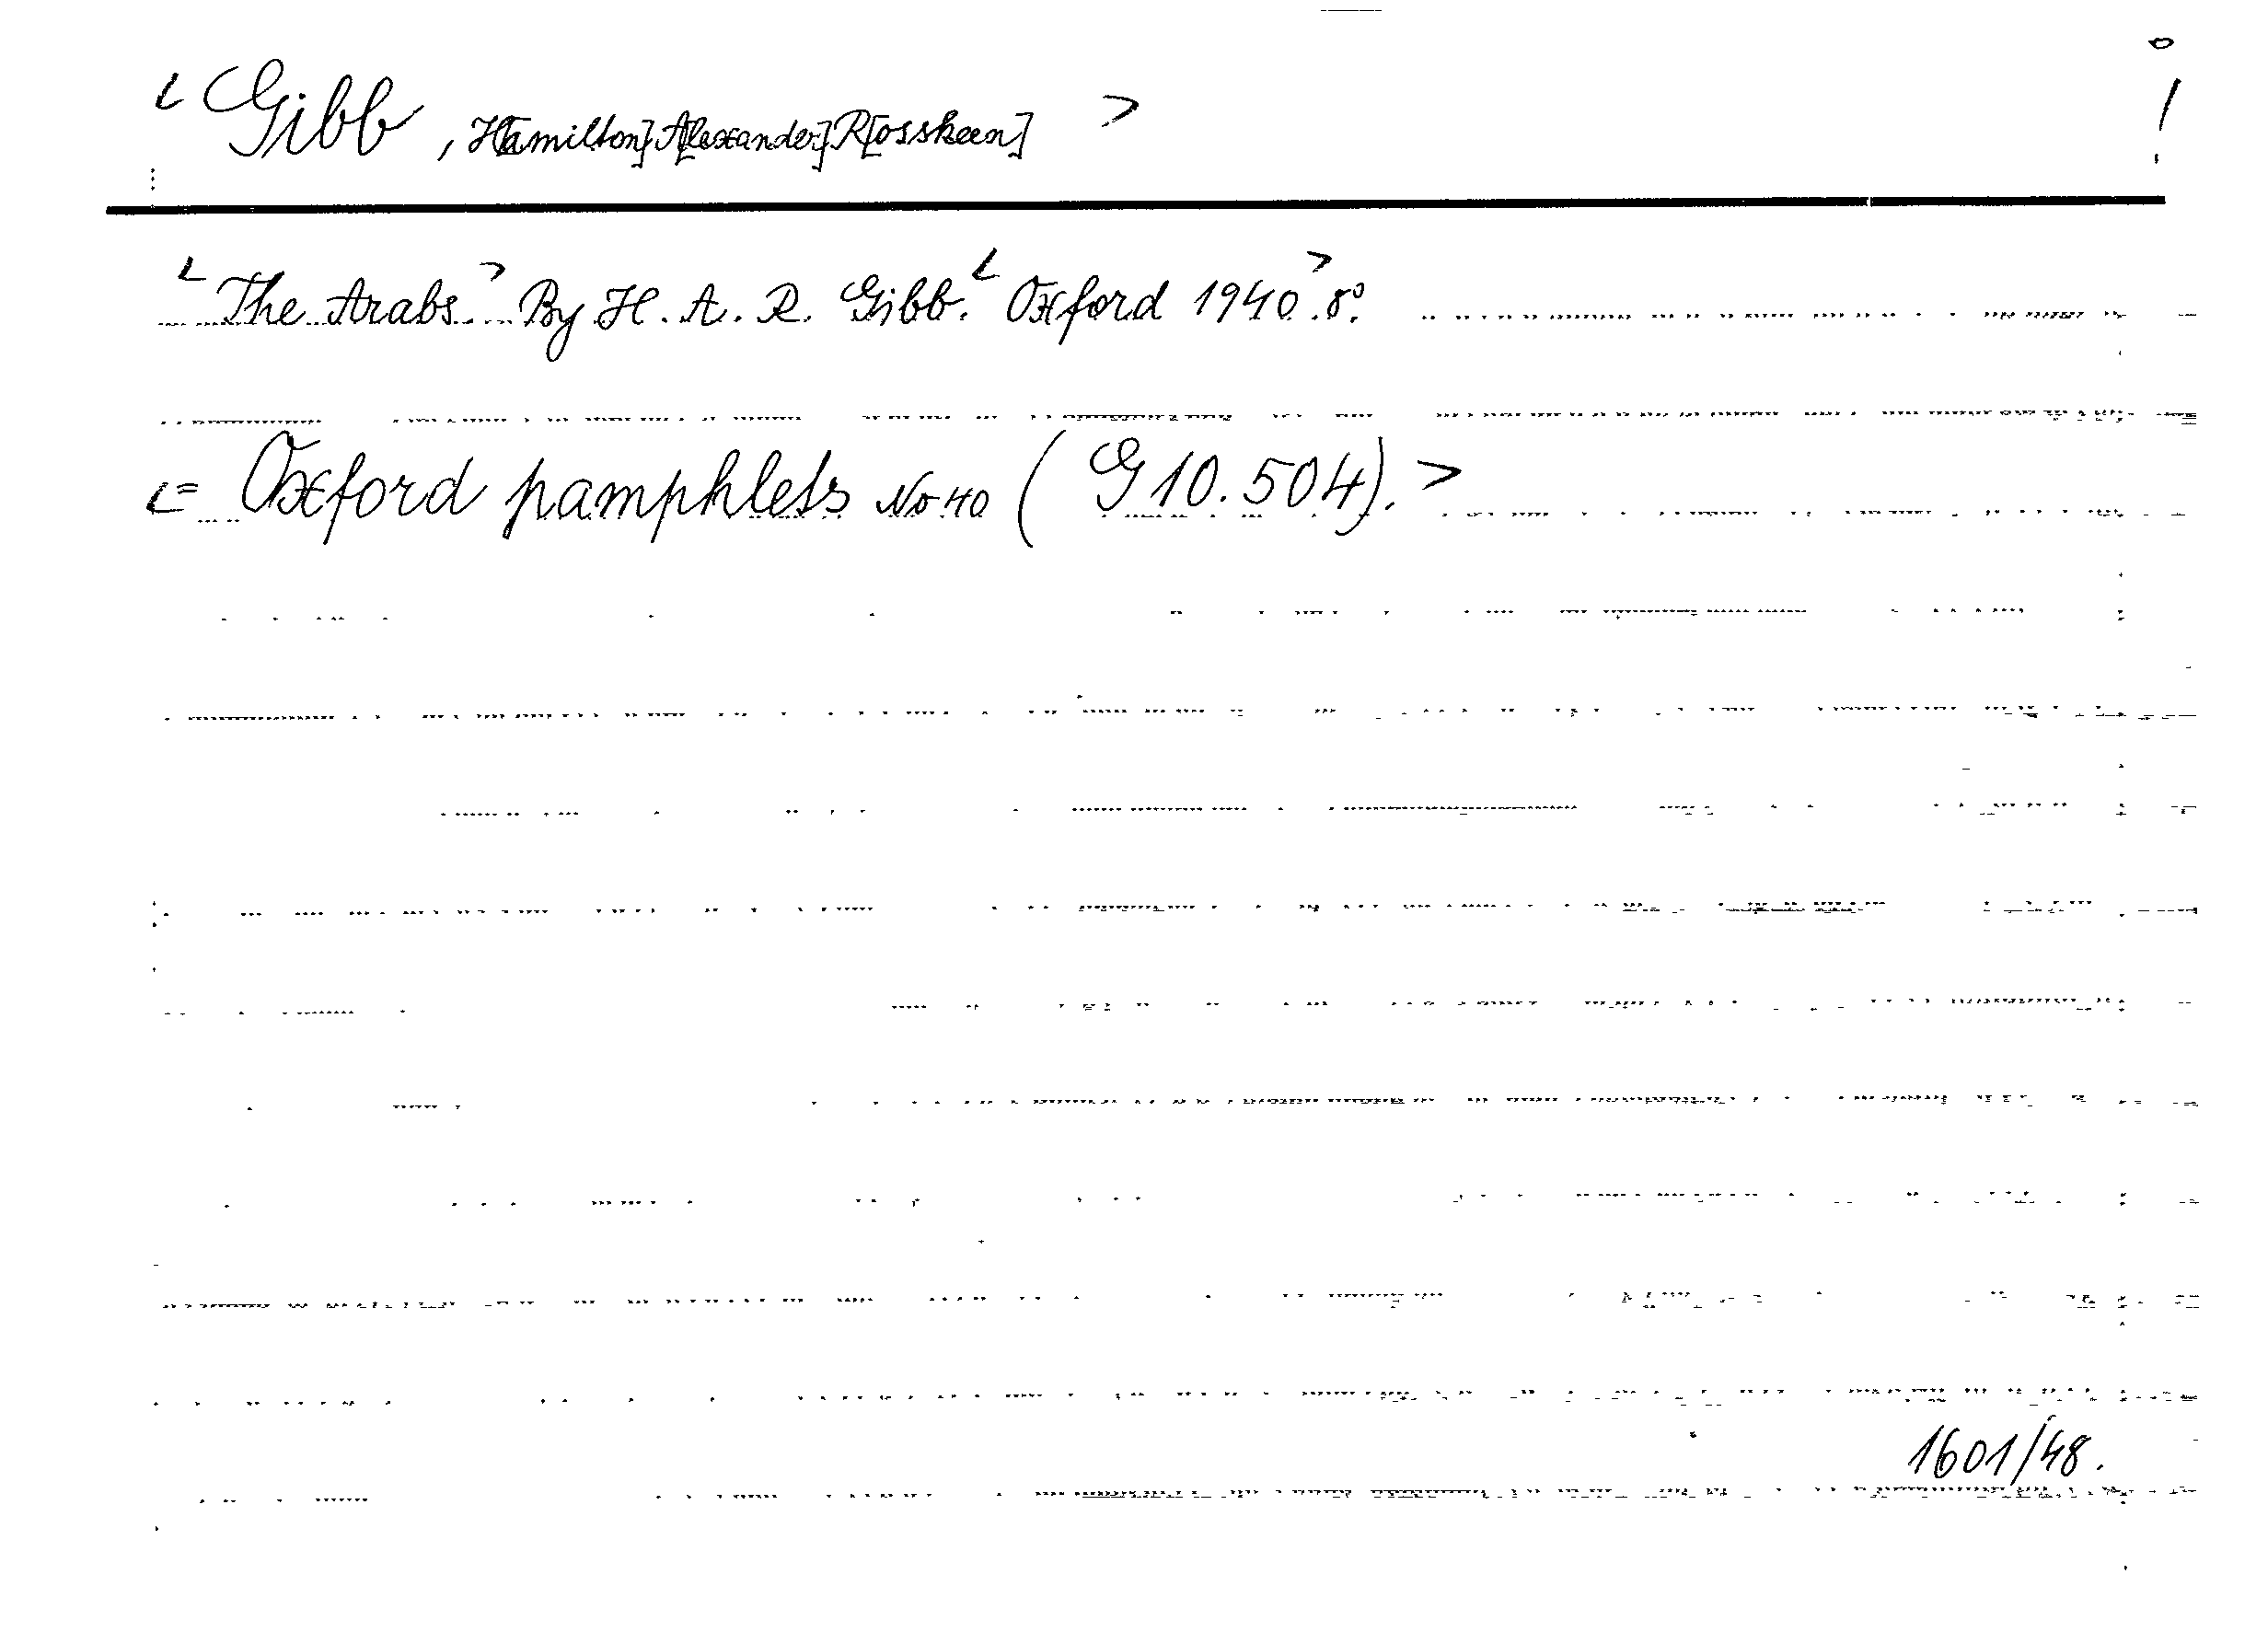 < Gibb, H[amilton] A[lexander] R[osskeen] >
< The Arabs. > By H. A. R. Gibb. < Oxford 1940. > 8°.
< = Oxford pamphlets No 40 ( G 10.504). >
1601/48.